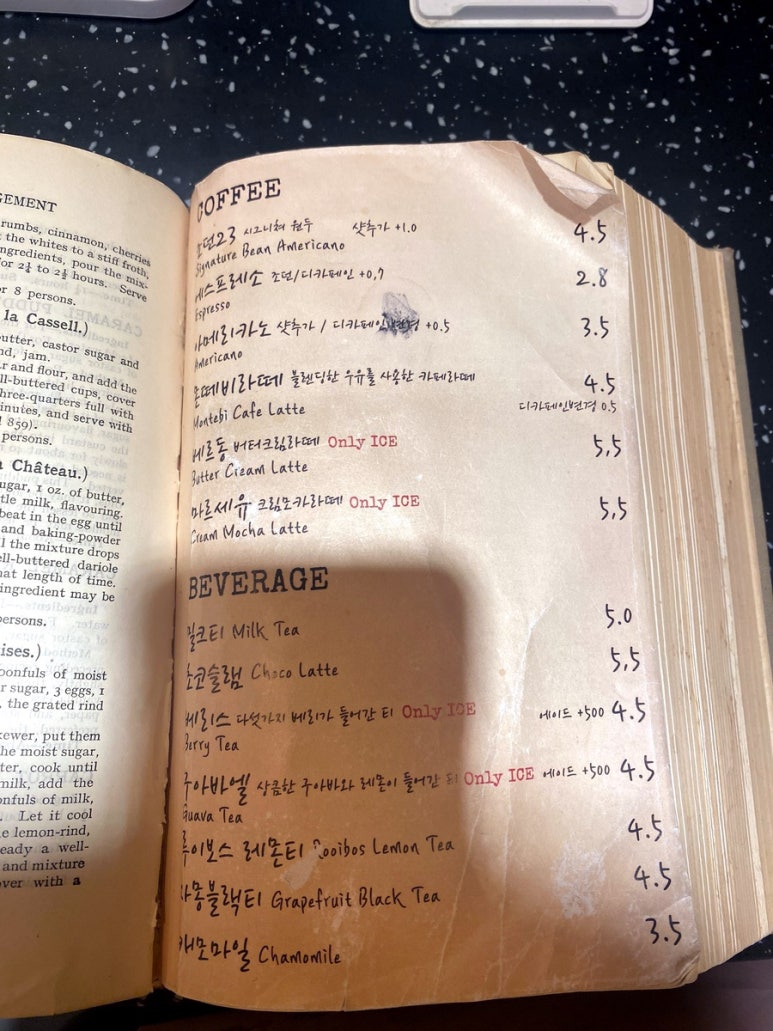 GEMENT
rumbs, cinnamon, cherries
the whites to a stiff froth,
ngredients, pour the mix-
for 2¼ to 2½ hours. Serve
or 8 persons.
la Cassell.)
utter, castor sugar and
nd, jam.
r and flour, and add the
ll-buttered cups, cover
hree-quarters full with
inutes, and serve with
859).
persons.
Château.)
ugar, 1 oz. of butter,
tle milk, flavouring.
beat in the egg until
and baking-powder
l the mixture drops
ell-buttered dariole
hat length of time.
ingredient may be
ersons.
ises.)
oonfuls of moist
r sugar, 3 eggs, 1
the grated rind
kewer, put them
he moist sugar,
ter, cook until
milk, add the
onfuls of milk,
Let it cool
e lemon-rind,
eady a well-
and mixture
over with a
COFFEE
조던23 시그니처 원두 샷추가 +1.0 4.5
Signature Bean Americano
에스프레소 조던/디카페인 +0,7 2.8
Espresso
아메리카노 샷추가 / 디카페인변경 +0.5 3.5
Americano
몬떼비라떼 블렌딩한 우유를 사용한 카페라떼 4.5
Montebi Cafe Latte 디카페인변경 0.5
베르동 버터크림라떼 Only ICE 5,5
Butter Cream Latte
마르세유 크림모카라떼 Only ICE 5,5
Cream Mocha Latte
BEVERAGE
밀크티 Milk Tea 5.0
초코슬램 Choco Latte 5,5
베리스 다섯가지 베리가 들어간 티 Only ICE 에이드 +500 4.5
Berry Tea
구아바엘 상큼한 구아바와 레몬이 들어간 티 Only ICE 에이드 +500 4.5
Guava Tea
루이보스 레몬티 Rooibos Lemon Tea 4.5
자몽블랙티 Grapefruit Black Tea 4.5
캐모마일 Chamomile 3.5